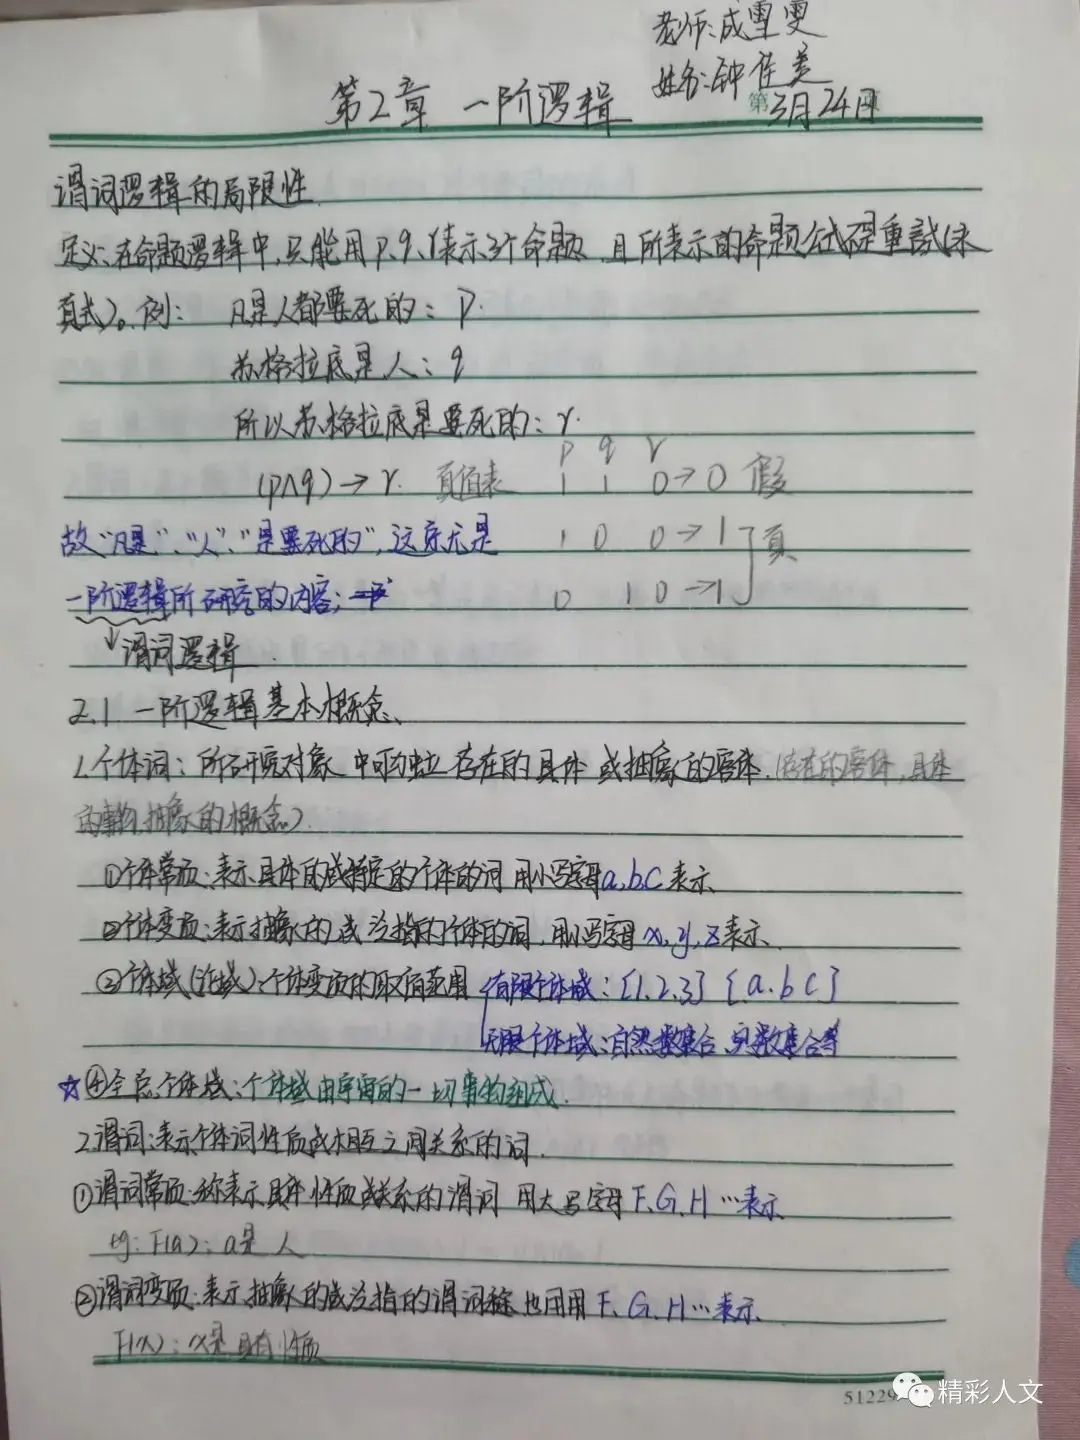 老师:成雪雯
姓名:钟佳美
第2章 一阶逻辑
第3月24日
谓词逻辑的局限性
定义:在命题逻辑中,只能用p、q、r表示3个命题,且所表示的命题公式不是重言式(永
真式)。例: 凡是人都要死的:p.
苏格拉底是人:q
所以苏格拉底是要死的:r.
p q r
(p∧q)→r. 真值表 1 1 0→0 假
故“凡是”、“人”、“是要死的”,这系无是 1 0 0→1 真
一阶逻辑所研究的内容; 0 1 0→1
↓谓词逻辑.
2.1 一阶逻辑基本概念、
1.个体词:所研究对象中可独立存在的具体或抽象的客体.(存在的客体,具体
的事物,抽象的概念).
①个体常项:表示具体的或特定的个体的词 用小写字母a,b,c表示、
②个体变项:表示抽象的或泛指的个体的词,用小写字母x,y,z表示、
③个体域(论域):个体变项的取值范围 有限个体域:{1,2,3} {a.b c}
无限个体域:自然数集合、实数集合等
☆④全总个体域:个体域由宇宙的一切事物组成.
2.谓词:表示个体词性质或相互之间关系的词.
①谓词常项:称表示具体性质或关系的谓词 用大写字母F、G、H…表示
eg:F(a):a是人
②谓词变项:表示抽象的或泛指的谓词称 也用用F、G、H…表示、
F(x):x是具有性质
51229
精彩人文